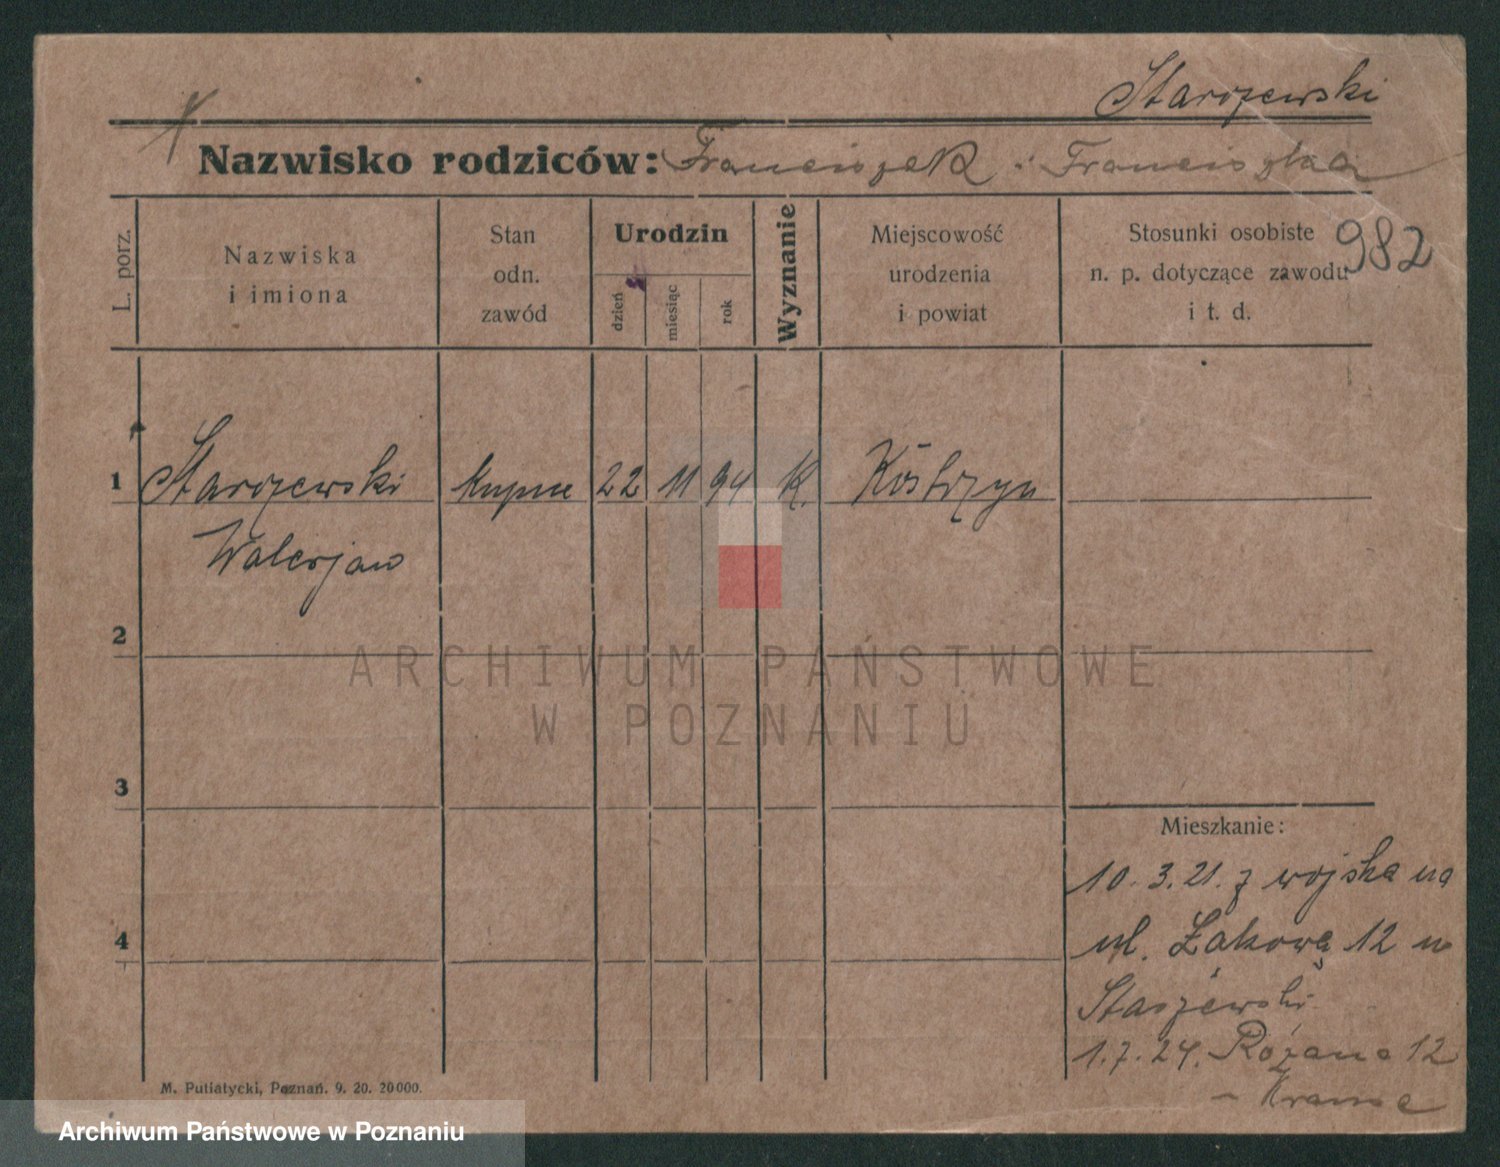 Starszewski
Nazwisko rodziców: Franciszek i Franciszka
982
L. porz.
Nazwiska
i imiona
Stan
odn.
zawód
Urodzin
dzień
miesiąc
rok
Wyznanie
Miejscowość
urodzenia
i powiat
Stosunki osobiste
n. p. dotyczące zawodu
i t. d.
1 Starszewski kupiec 22 11 94 K. Kostrzyn
Walerjan
2
ARCHIWUM PAŃSTWOWE
W POZNANIU
3
Mieszkanie:
10. 3. 21. z wojska na
4
ul. Łąkową 12 u
Staszewski
1. 7. 24. Różana 12
M. Putiatycki, Poznań. 9. 20. 20000.
Archiwum Państwowe w Poznaniu